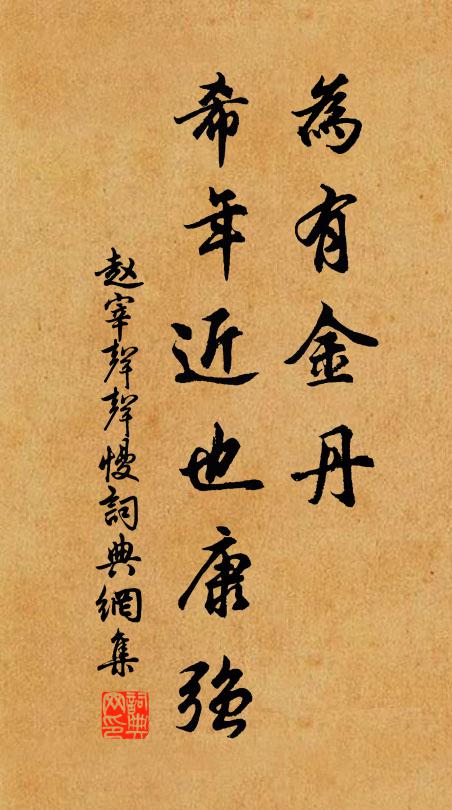 為有金丹
希年近也康強
赵宰聲聲慢詞典網集
詞典網印